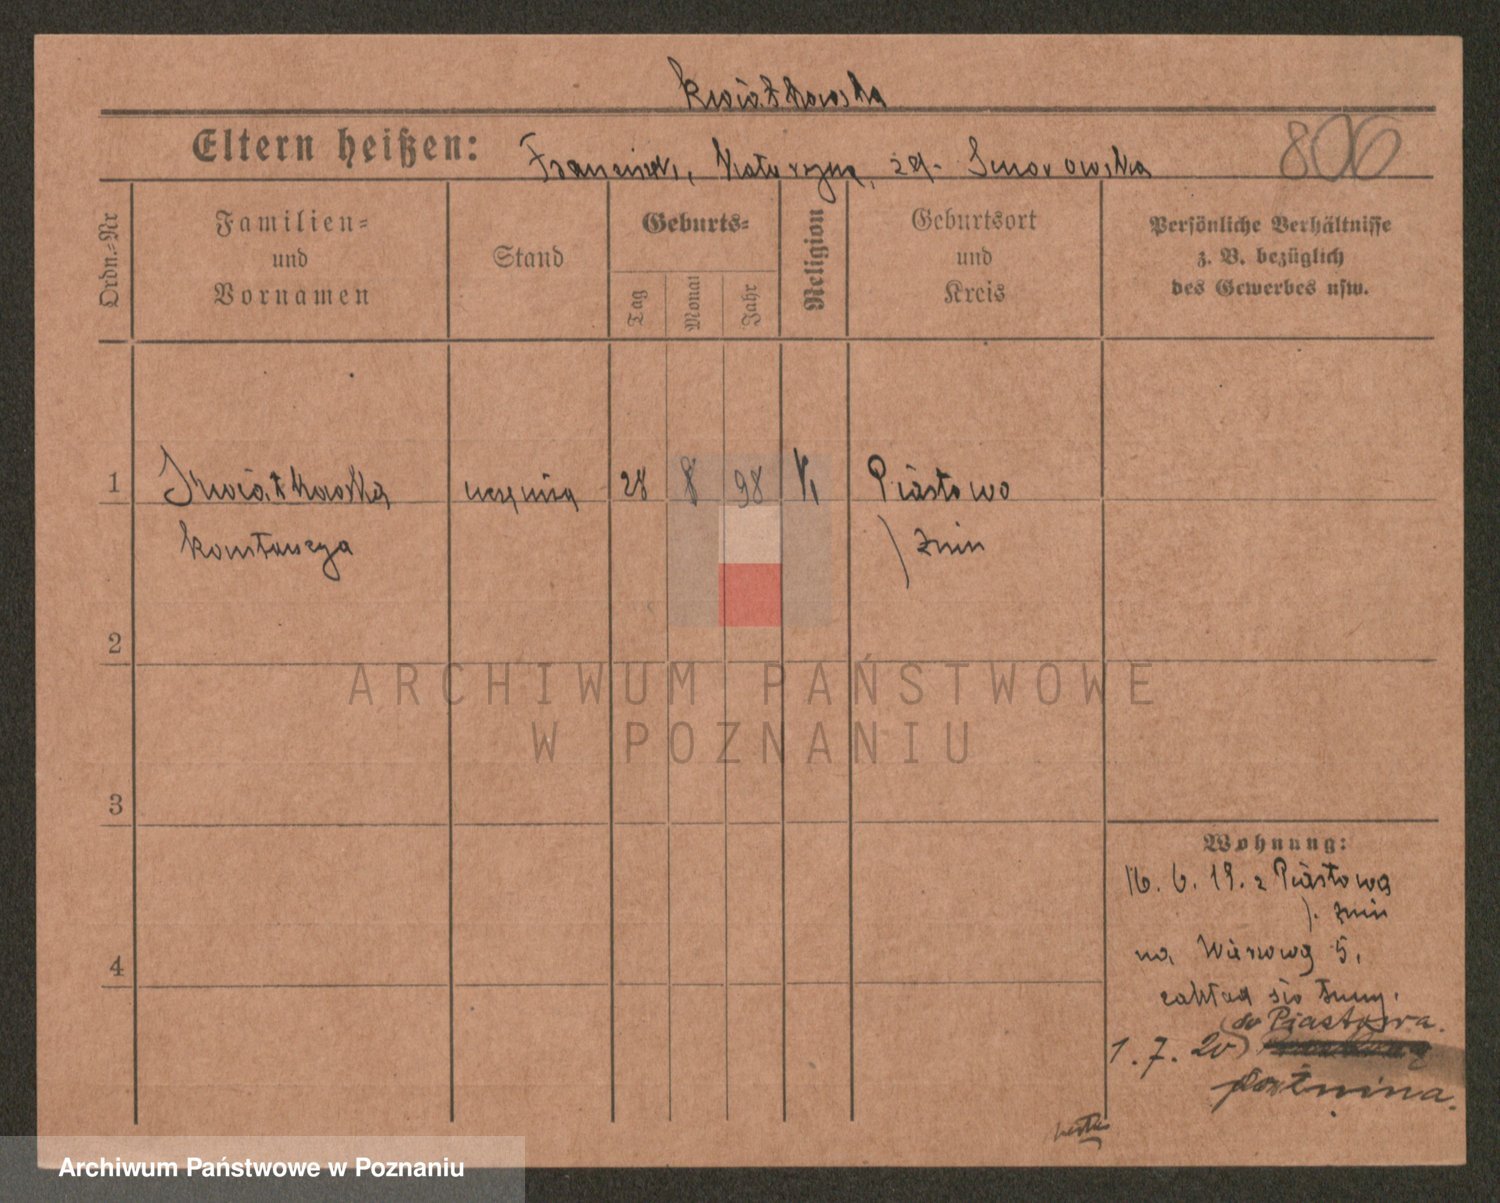 Kwiatkowska
Eltern heißen: Franciszek, Katarzyna, zd. Smorowska
806
Ordn.=Nr
Familien=
und
Vornamen
Stand
Geburts=
Tag
Monat
Jahr
Religion
Geburtsort
und
Kreis
Persönliche Verhältnisse
z. B. bezüglich
des Gewerbes usw.
1 Kwiatkowska uczenica 28 8 98 K, Piastowo
Konstancya ) Żnin
2
ARCHIWUM PAŃSTWOWE
W POZNANIU
3
Wohnung:
16. 6. 19. z Piastowa
). Żnin
na 5,
zakład
do Piastowa.
1. 7. 20
Żnina.
4
Archiwum Państwowe w Poznaniu